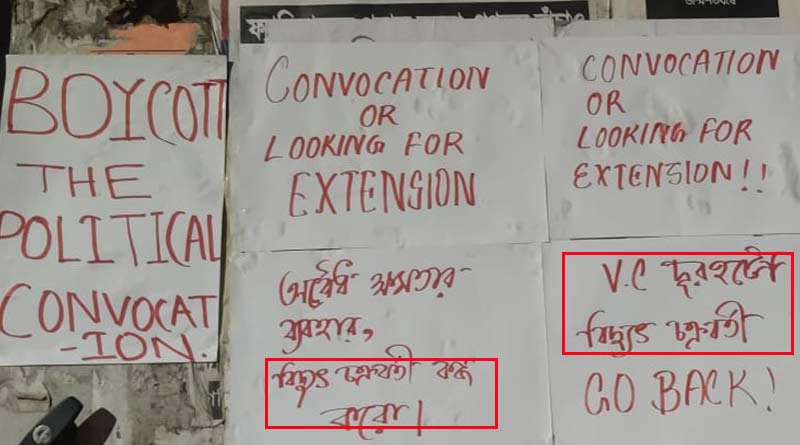 BOYCOTT
THE
POLITICAL
CONVOCAT
-ION.
CONVOCATION
OR
LOOKING FOR
EXTENSION
CONVOCATION
OR
LOOKING FOR
EXTENSION!!
অবৈধ ক্ষমতার
ব্যবহার,
বিদ্যুৎ চক্রবর্তী বন্ধ
করো।
V.C দূরহটো
বিদ্যুৎ চক্রবর্তী
GO BACK!